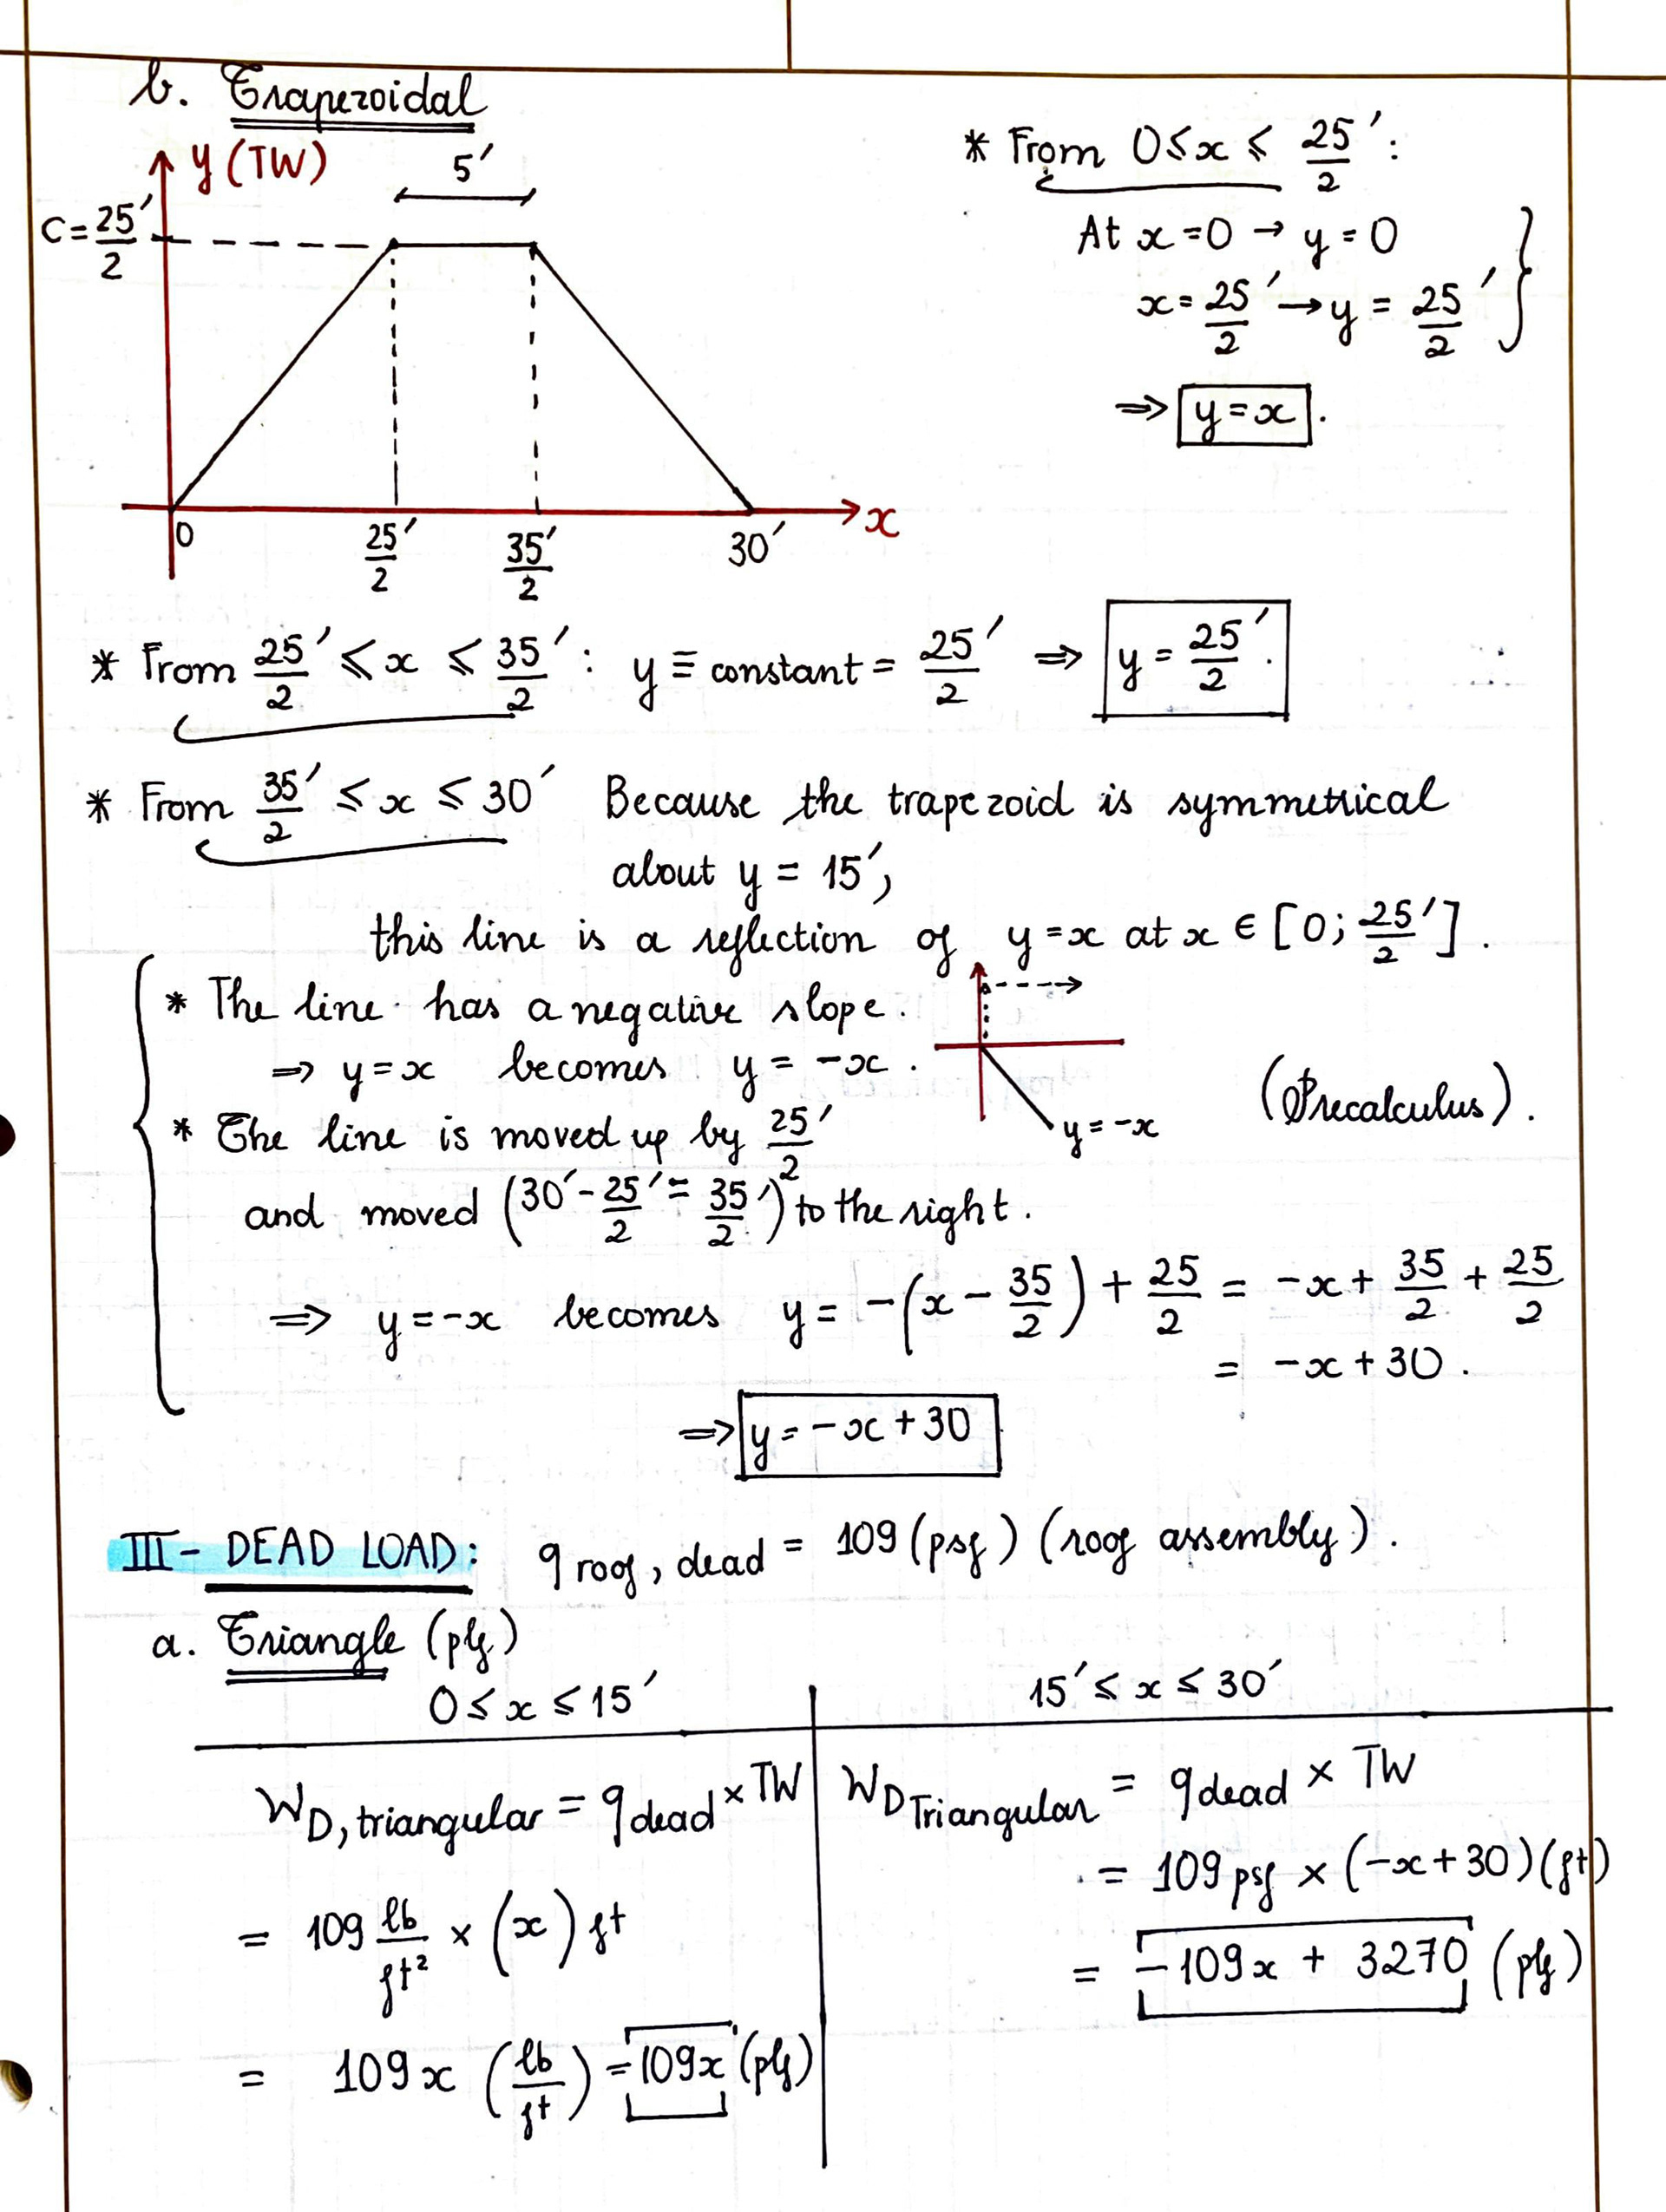 b. Trapezoidal
y (TW)
5'
C = 25'/2
0
25'/2
35'/2
30'
x
* From 0 ≤ x ≤ 25'/2 :
At x = 0 → y = 0
x = 25'/2 → y = 25'/2
⇒ y = x .
* From 25'/2 ≤ x ≤ 35'/2 : y ≡ constant = 25'/2 ⇒ y = 25'/2 .
* From 35'/2 ≤ x ≤ 30' Because the trapezoid is symmetrical
about y = 15',
this line is a reflection of y = x at x ∈ [0; 25'/2] .
* The line has a negative slope.
⇒ y = x becomes y = -x .
y = -x
(Precalculus).
* The line is moved up by 25'/2
and moved (30' - 25'/2 = 35'/2) to the right.
⇒ y = -x becomes y = -(x - 35/2) + 25/2 = -x + 35/2 + 25/2
= -x + 30 .
⇒ y = -x + 30
III - DEAD LOAD: q roof, dead = 109 (psf) (roof assembly).
a. Triangle (plf)
0 ≤ x ≤ 15'
W D, triangular = q dead × TW
= 109 lb/ft² × (x) ft
= 109x (lb/ft) = 109x (plf)
15' ≤ x ≤ 30'
W D Triangular = q dead × TW
= 109 psf × (-x + 30) (ft)
= -109x + 3270 (plf)